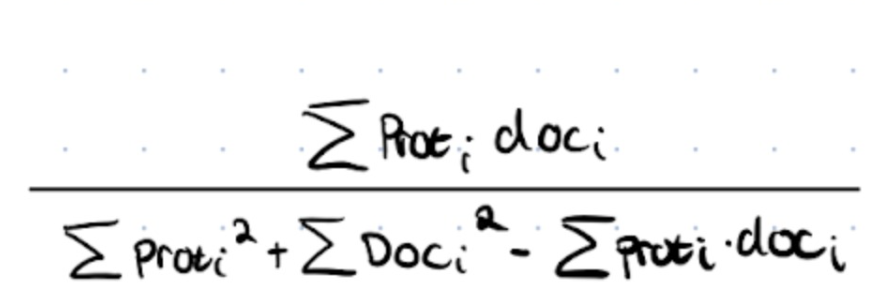 ∑ Prot_i doc_i
∑ prot_i² + ∑ Doc_i² - ∑ prot_i · doc_i